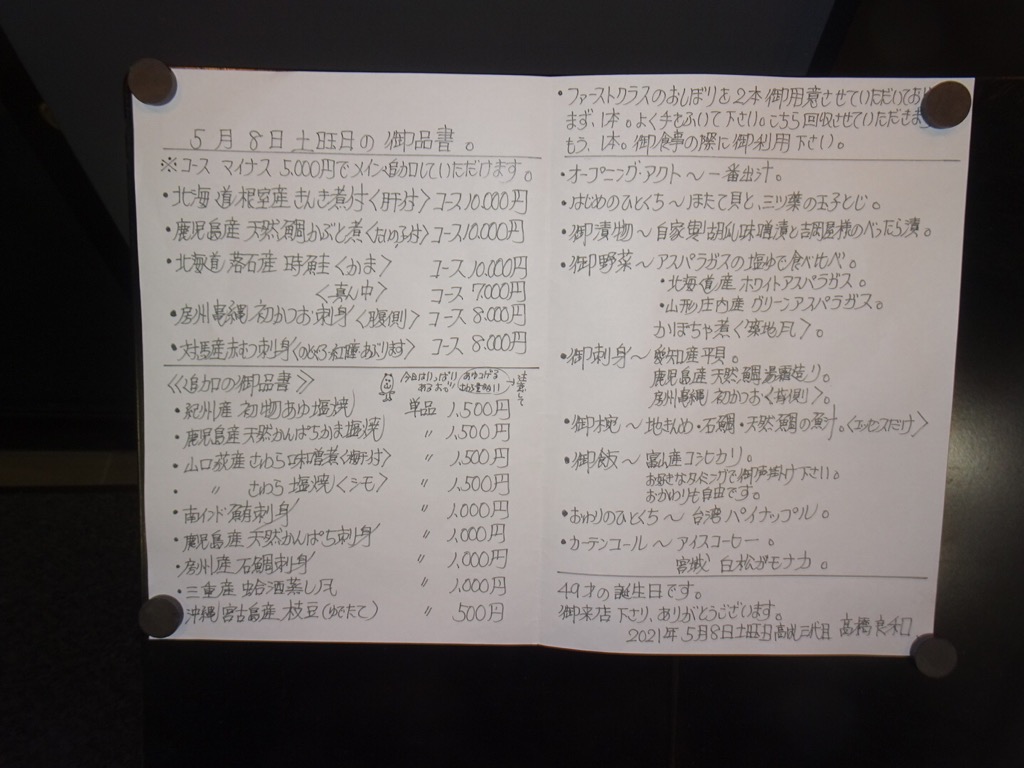 5月8日土曜日の御品書。
※コース マイナス 5.000円でメイン追加していただけます。
・北海道根室産 きんき煮付〈肝付〉 コース10.000円
・鹿児島産 天然鯛かぶと煮〈たいの子付〉 コース10.000円
・北海道落石産 時鮭〈かま〉 コース 10.000円
〈真ん中〉 コース 7.000円
・房州勝浦 初かつお刺身〈腹側〉 コース 8.000円
・対馬産赤むつ刺身〈のどぐろ 紅瞳 あぶり〉 コース 8.000円
《追加の御品書》
今日はいっぱい あるので
・紀州産 初物あゆ塩焼 単品 1,500円
・鹿児島産 天然かんぱちかま塩焼 〃 1,500円
・山口萩産 さわら味噌煮〈梅干付〉 〃 1,500円
・ 〃 さわら 塩焼〈シモ〉 〃 1,500円
・南インド鮪刺身 〃 1,000円
・鹿児島産 天然かんぱち刺身 〃 1,000円
・房州産 石鯛刺身 〃 1,000円
・三重産 蛤酒蒸し風 〃 1,000円
・沖縄宮古島産 枝豆(ゆでたて) 〃 500円
・ファーストクラスのおしぼりを2本御用意させていただいており
まず、1本。よく手をふいて下さい。こちら回収させていただきま
もう、1本。御食事の際に御利用下さい。
・オープニング・アクト～一番出汁。
・はじめのひとくち～ほたて貝と、三ツ葉の玉子とじ。
・御漬物～自家製胡瓜味噌漬と吉岡屋様のべったら漬。
・御野菜～アスパラガスの塩ゆで食べ比べ。
・北海道産 ホワイトアスパラガス。
・山形庄内産 グリーンアスパラガス。
かぼちゃ煮〈築地風〉。
・御刺身～愛知産平貝。
鹿児島産 天然鯛湯霜造り。
房州勝浦 初かつお〈背側〉。
・御椀～地きんめ・石鯛・天然鯛の魚汁。〈エッセンスだけ〉
・御飯～富山産コシヒカリ。
お好きなタイミングで御声掛け下さい。
おかわりも自由です。
・おわりのひとくち～台湾パイナップル。
・カーテンコール～アイスコーヒー。
宮城 白松がモナカ。
49才の誕生日です。
御来店下さり、ありがとうございます。
2021年5月8日土曜日 高はし三代目 髙橋良和